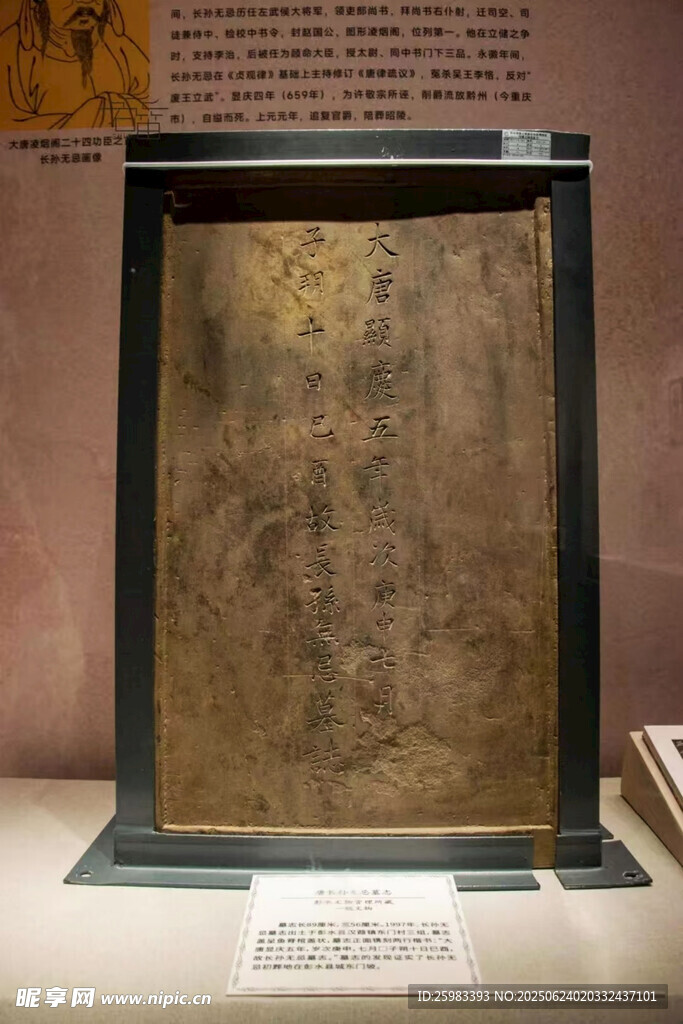 间，长孙无忌历任左武侯大将军，领吏部尚书，拜尚书右仆射，迁司空、司
徒兼侍中、检校中书令，封赵国公，图形凌烟阁，位列第一。他在立储之争
时，支持李治，后被任为顾命大臣，授太尉、同中书门下三品。永徽年间，
长孙无忌在《贞观律》基础上主持修订《唐律疏议》，冤杀吴王李恪，反对“
废王立武”。显庆四年（659年），为许敬宗所诬，削爵流放黔州（今重庆
市），自缢而死。上元元年，追复官爵，陪葬昭陵。
大唐凌烟阁二十四功臣之
长孙无忌画像
大唐顯慶五年歲次庚申七月
子朔十日巳酉故長孫無忌墓誌
唐长孙无忌墓志
彭水文物管理所藏
一级文物
墓志长89厘米，宽56厘米。1997年，长孙无
忌墓志出土于彭水县汉葭镇东门村三组，墓志
盖呈
墓志正面镌刻两行楷书：“大
唐显庆五年，岁次庚申，七月□子朔十日巳酉，
故长孙无忌墓志。”墓志的发现证实了长孙无
忌初葬地在彭水县城东门坡。
昵享网 www.nipic.cn
ID:25983393 NO:20250624020332437101